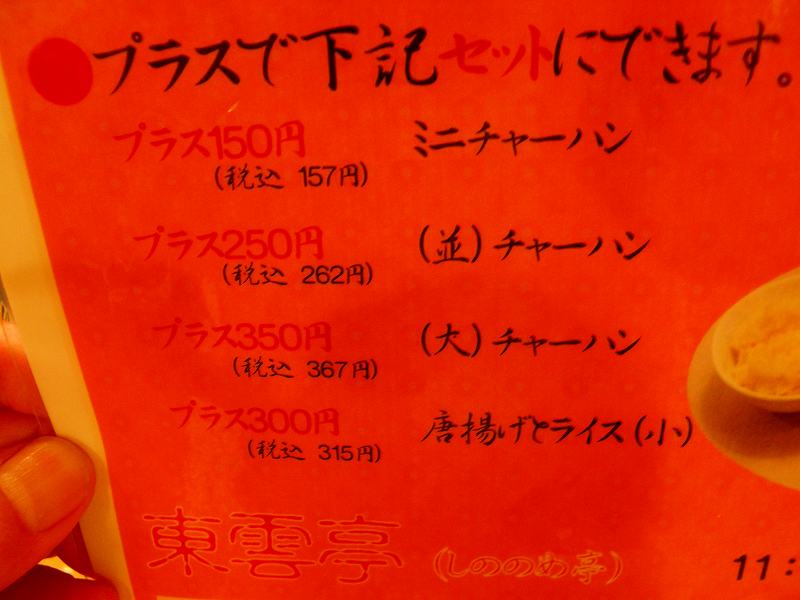 プラスで下記セットにできます。
プラス150円 ミニチャーハン
(税込 157円)
プラス250円 (並)チャーハン
(税込 262円)
プラス350円 (大)チャーハン
(税込 367円)
プラス300円 唐揚げとライス(小)
(税込 315円)
東雲亭 (しののめ亭) 11: